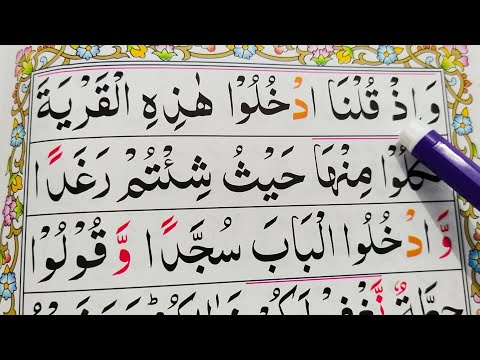 وَاِذْ قُلْنَا ادْخُلُوْا هٰذِهِ الْقَرْيَةَ
فَكُلُوْا مِنْهَا حَيْثُ شِئْتُمْ رَغَدًا
وَّادْخُلُوا الْبَابَ سُجَّدًا وَّقُوْلُوْا
حِطَّةٌ نَّغْفِرْ لَكُمْ